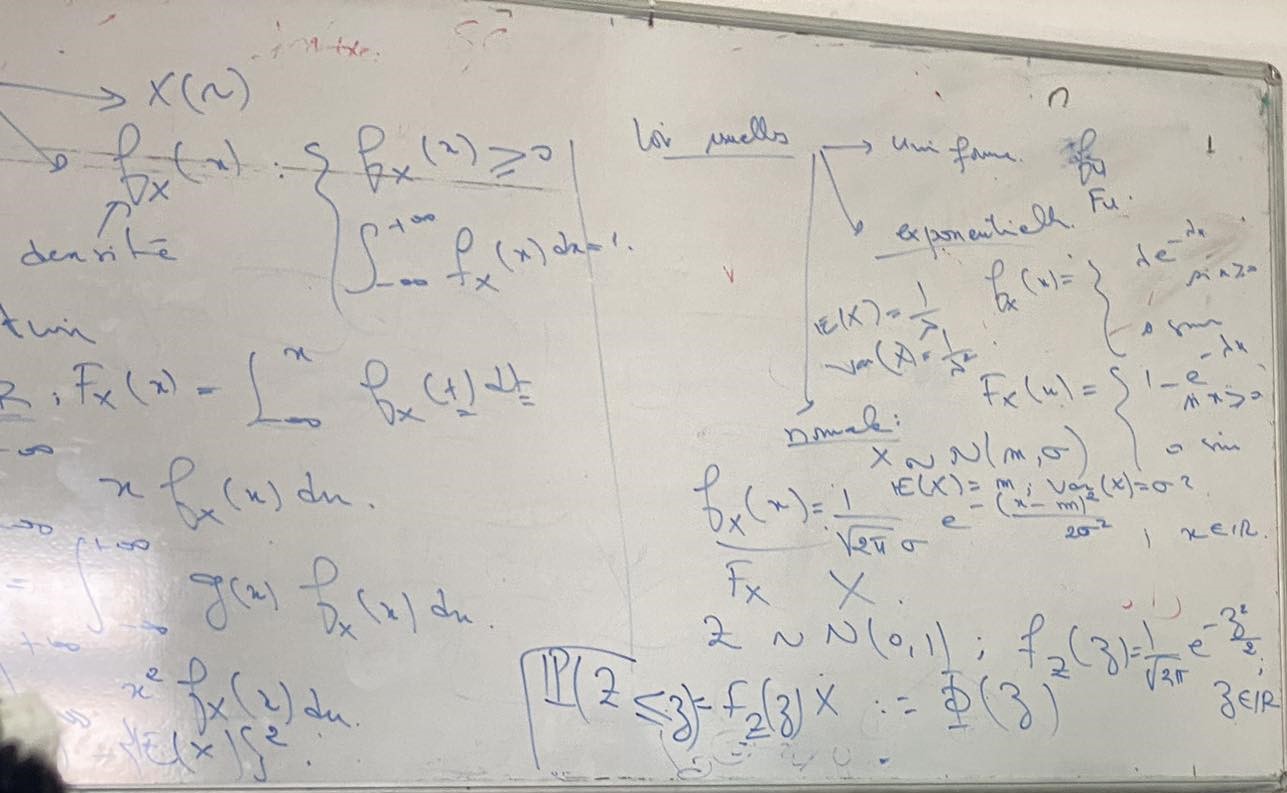 X(Ω)
f_X(x) : { f_X(x) ≥ 0
∫_{-∞}^{+∞} f_X(x) dx = 1.
densité
R ; F_X(x) = ∫_{-∞}^{x} f_X(t) dt
-∞
x f_X(x) dx.
-∞
= ∫_{-∞}^{+∞} g(x) f_X(x) dx.
+∞
x² f_X(x) dx.
- {E(X)}².
Loi usuelles → uniforme. f_U
F_U.
exponentielle.
f_X(x) = { λe^{-λx} si x ≥ 0
0 sinon
E(X) = 1/λ
Var(X) = 1/λ²
F_X(x) = { 1 - e^{-λx} si x ≥ 0
0 sin
normale :
X ~ N(m, σ)
E(X) = m ; Var(X) = σ²
f_X(x) = 1/(√2π σ) e^{-(x-m)²/2σ²} , x ∈ IR.
F_X X.
Z ~ N(0,1) ; f_Z(z) = 1/√2π e^{-z²/2} ;
z ∈ IR
IP(Z ≤ z) = F_Z(z) X := Φ(z)